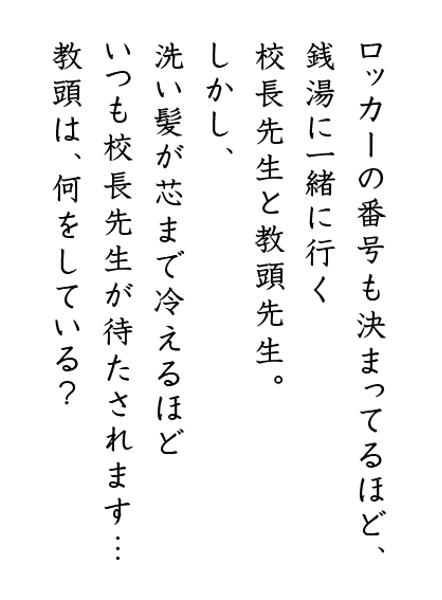 ロッカーの番号も決まってるほど、
銭湯に一緒に行く
校長先生と教頭先生。
しかし、
洗い髪が芯まで冷えるほど
いつも校長先生が待たされます…
教頭は、何をしている？